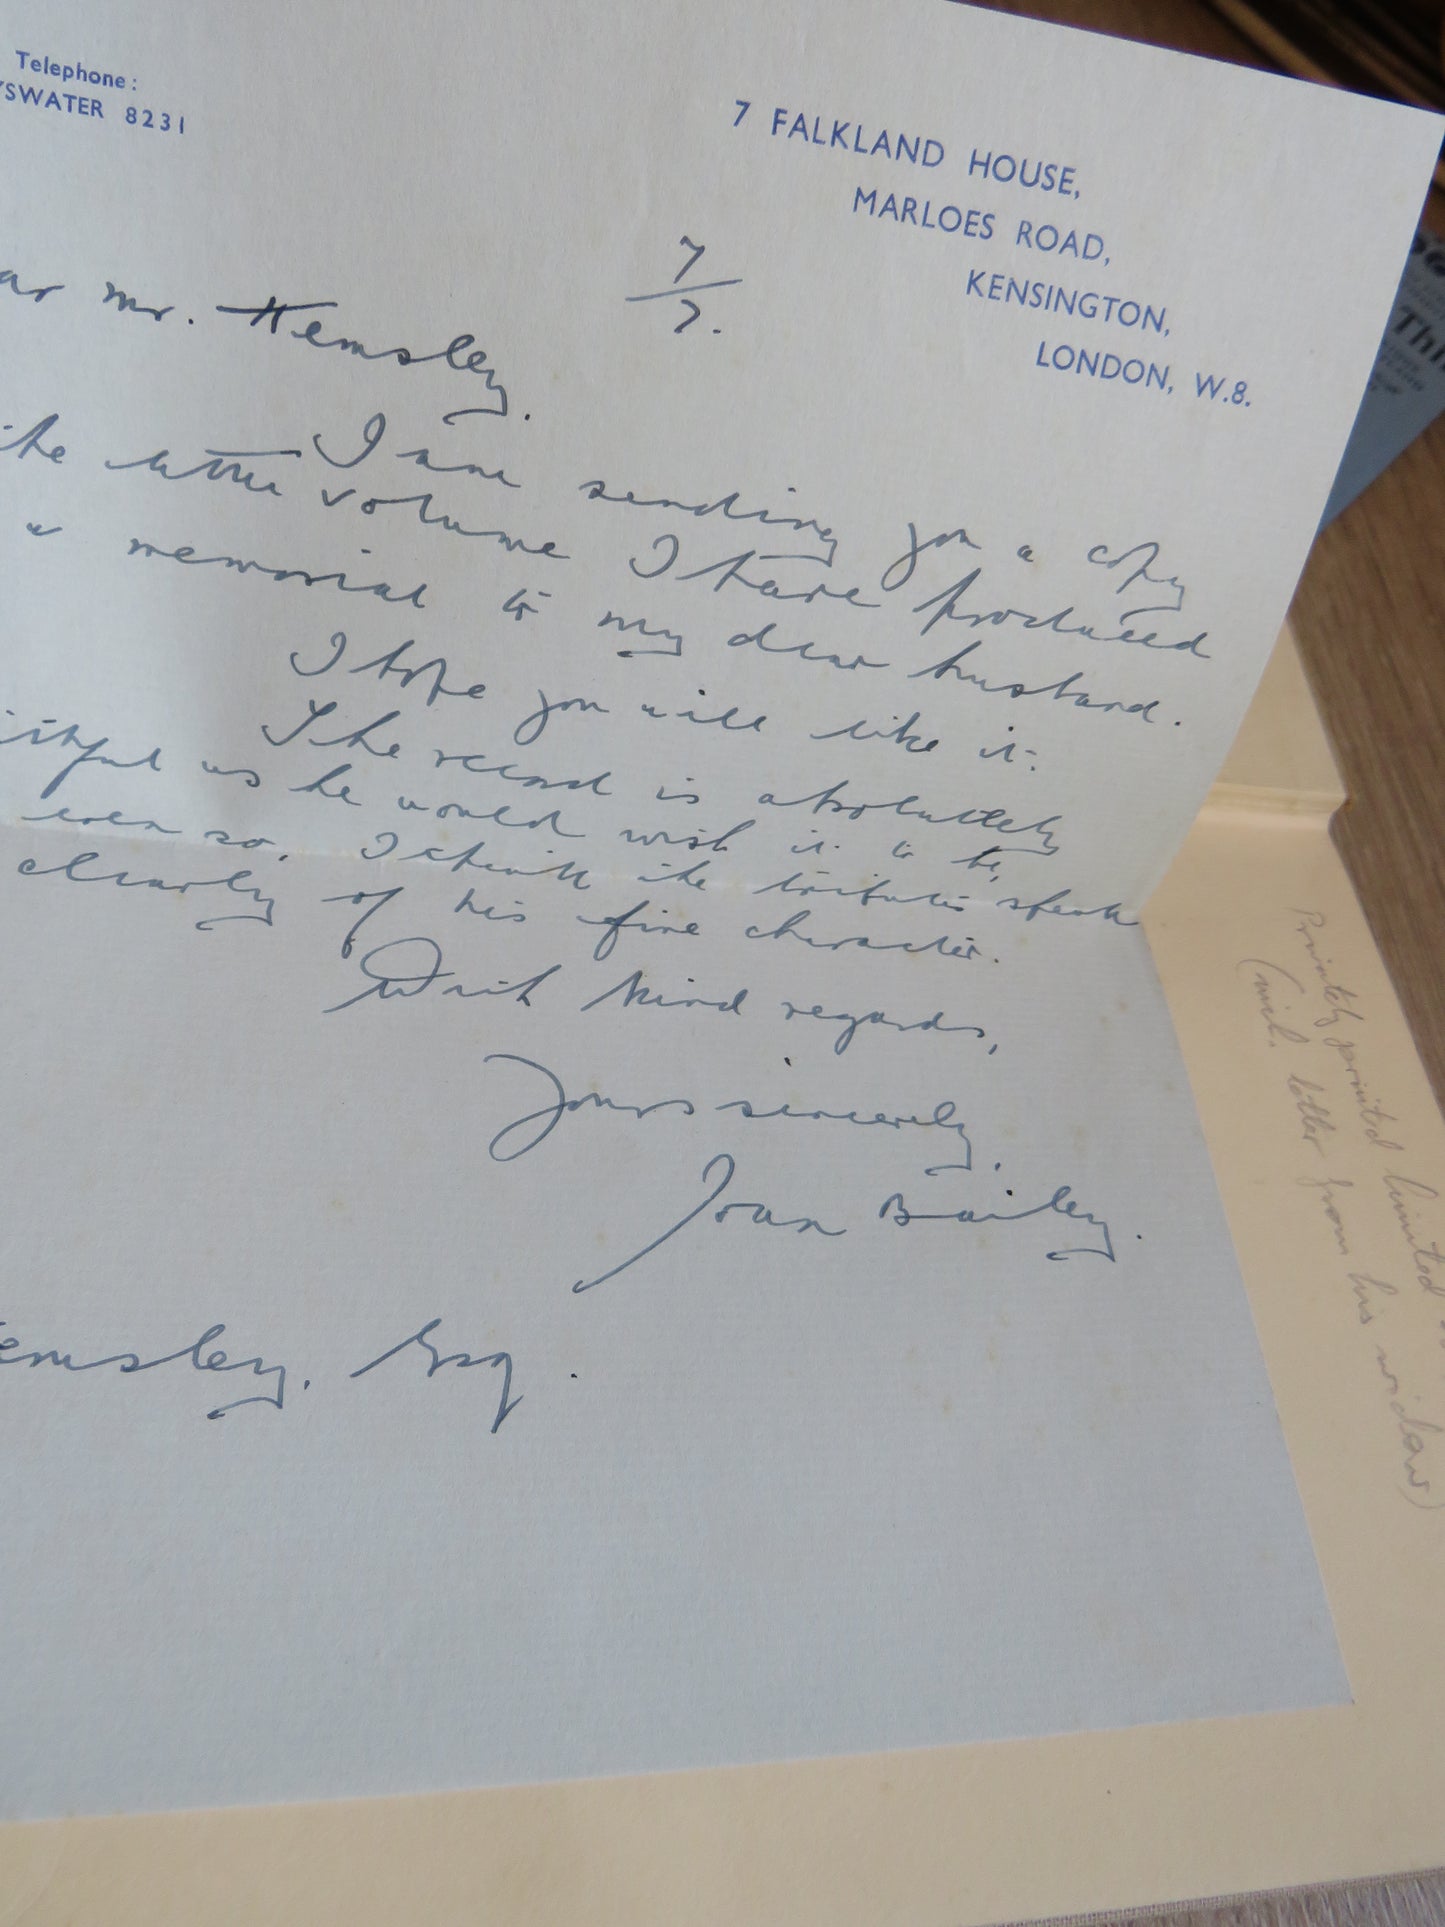 Telephone:
YSWATER 8231
7 FALKLAND HOUSE,
MARLOES ROAD,
KENSINGTON,
LONDON, W.8.
7/7.
ar Mr. Hemsley.
I am sending you a copy
the little volume I have produced
a memorial to my dear husband.
I hope you will like it.
The record is absolutely
ithful as he would wish it to be,
even so, I think the tributes speak
clearly of his fine character.
With kind regards,
Yours sincerely,
Joan Bailey.
emsley. Esq.
Privately printed limited
(with letter from his widow)